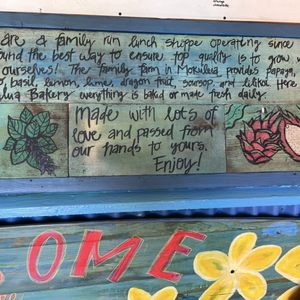 are a family run lunch shoppe operating since
ound the best way to ensure top quality is to grow
ourselves! The family farm in Mokuleia provides papaya,
basil, lemon, lime, dragon fruit, soursop and lilikoi. Here
Bakery everything is baked or made fresh daily.
Made with lots of
love and passed from
our hands to yours.
Enjoy!
OME